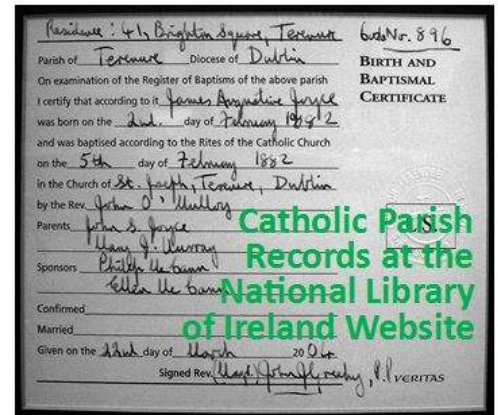 Residence : 41, Brighton Square, Terenure
Parish of Terenure Diocese of Dublin
On examination of the Register of Baptisms of the above parish
I certify that according to it James Augustine Joyce
was born on the 2nd. day of February 1882
and was baptised according to the Rites of the Catholic Church
on the 5th day of February 1882
in the Church of St. Joseph, Terenure, Dublin
by the Rev. John O' Mulloy
Parents John S. Joyce
Mary J. Murray
Sponsors Philip Mc Cann
Ellen Mc Cann
Confirmed
Married
Given on the 22nd day of March 2004
Signed Rev.
P.P. VERITAS
No. 896
BIRTH AND
BAPTISMAL
CERTIFICATE
L.S.
Catholic Parish
Records at the
National Library
of Ireland Website